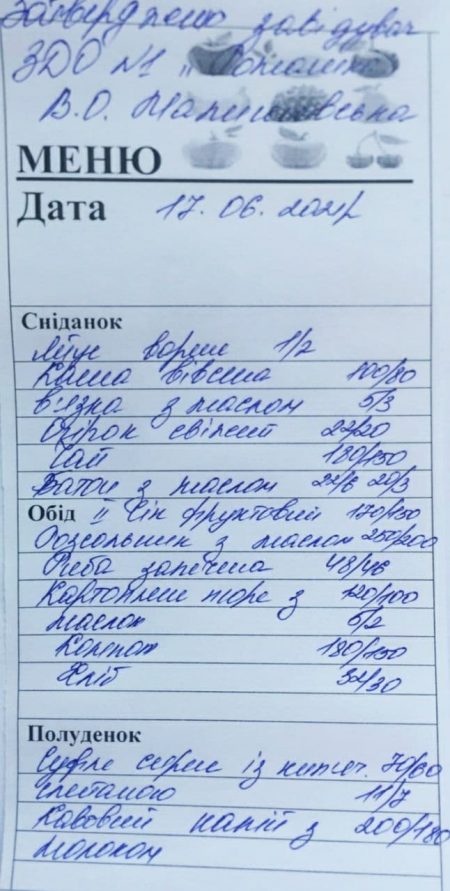 Затверджено завідувач
ЗДО №1 "Ромашка"
В.О.
МЕНЮ
Дата 17.06.2021
Сніданок
Яйце варене 1/2
Каша вівсяна 100/80
в'язка з маслом 5/3
Огірок свіжий 22/20
Чай 180/150
Батон з маслом 22/6 20/3
Обід ІІ Сік фруктовий 170/150
Розсольник з маслом 250/200
Риба запечена 48/46
Картопляне пюре з 120/100
маслом 5/2
Компот 180/150
Хліб 32/30
Полуденок
Суфле сирне із 70/60
сметаною 11/7
Кавовий напій з 200/180
молоком